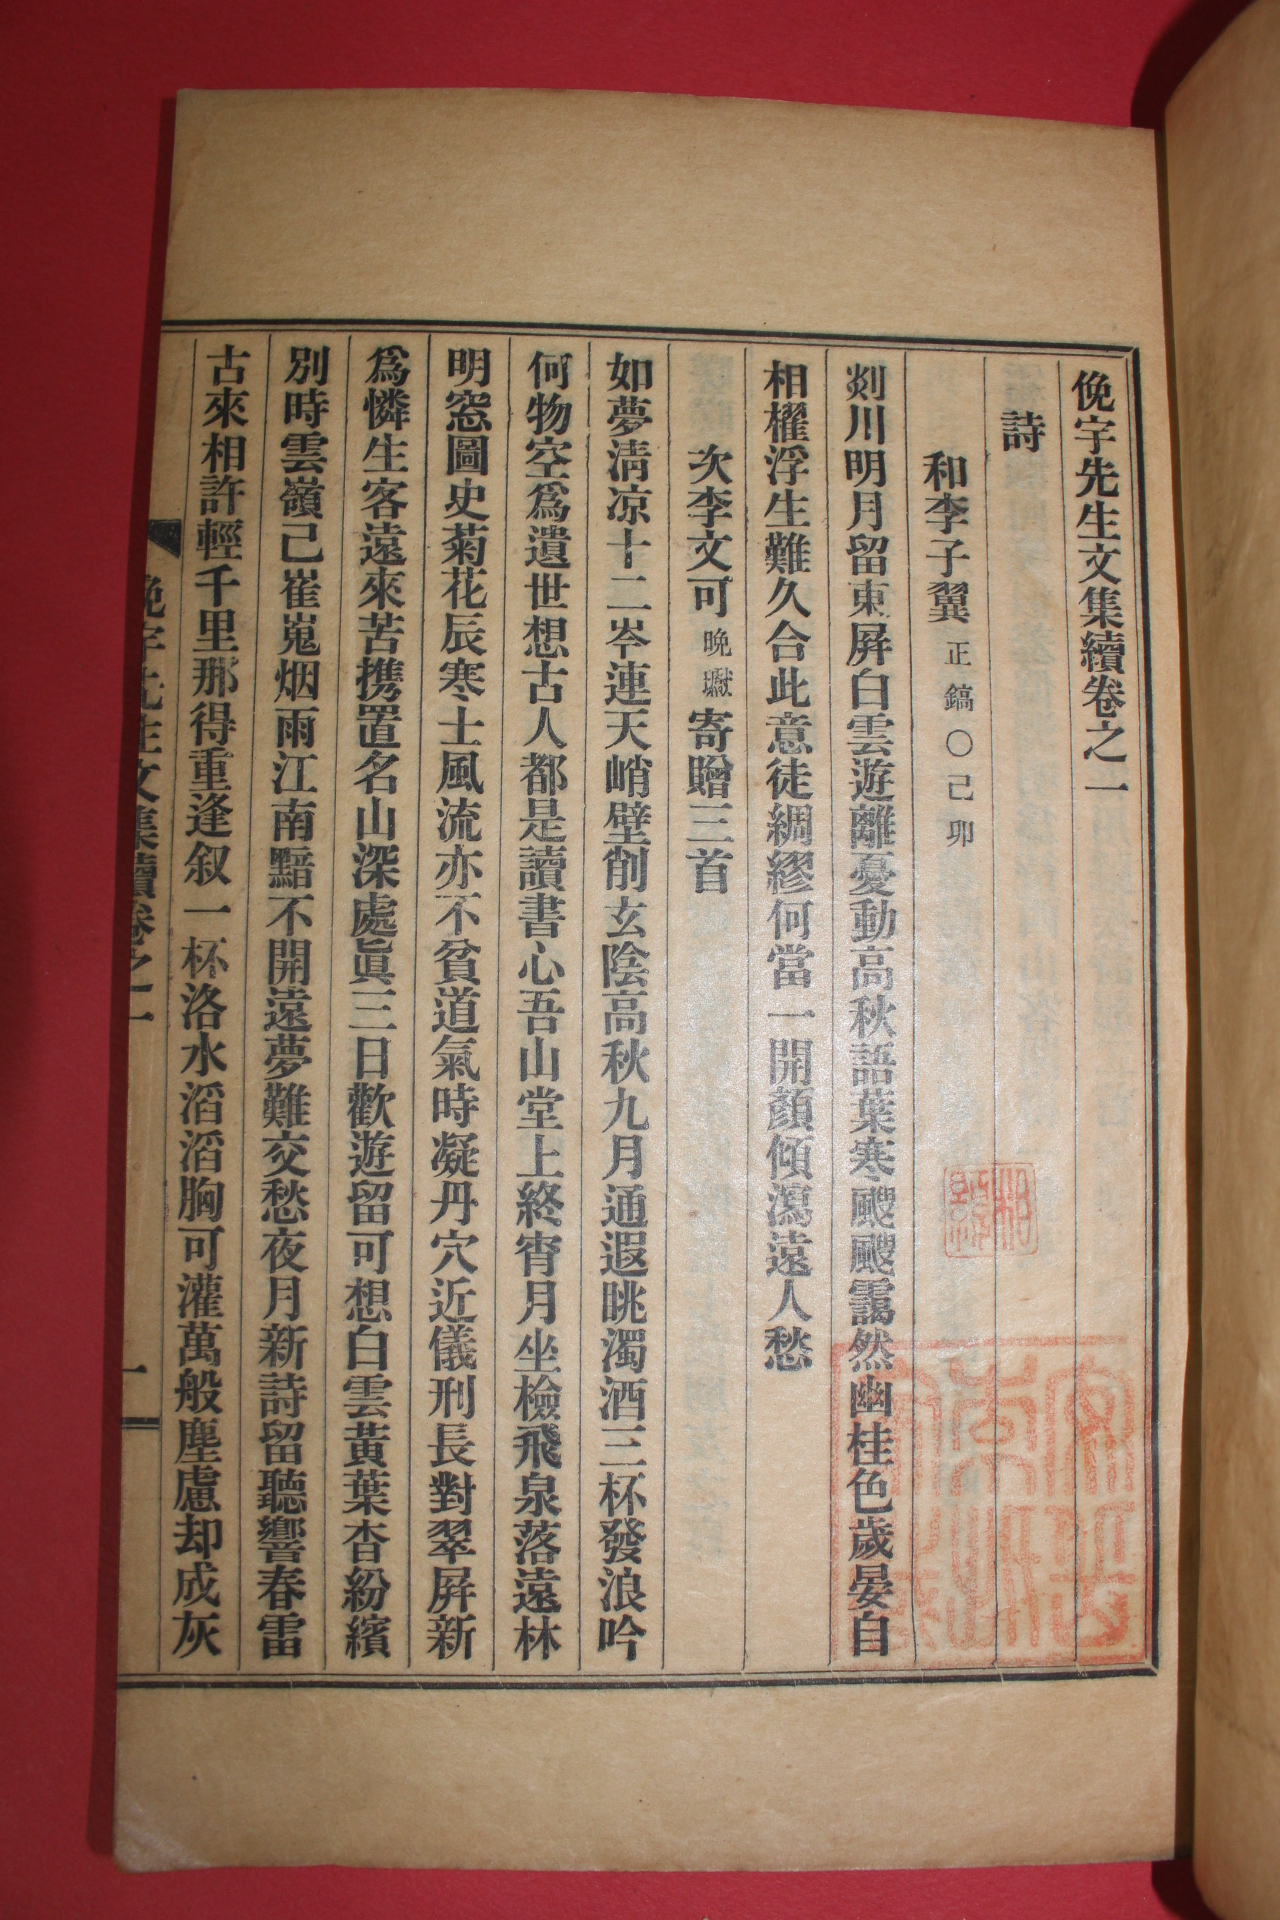 俛宇先生文集續卷之一
詩
和李子翼 正鎬○己卯
剡川明月留東屛白雲遊離憂動高秋語葉寒颼颼靄然幽桂色歲晏自
相櫂浮生難久合此意徒綢繆何當一開顏傾瀉遠人愁
次李文可 晩 寄贈三首
如夢淸凉十二岑連天峭壁削玄陰高秋九月通遐眺濁酒三杯發浪吟
何物空爲遺世想古人都是讀書心吾山堂上終宵月坐檢飛泉落遠林
明窓圖史菊花辰寒士風流亦不貧道氣時凝丹穴近儀刑長對翠屛新
爲憐生客遠來苦携置名山深處眞三日歡遊留可想白雲黃葉杳紛繽
別時雲嶺已崔嵬烟雨江南黯不開遠夢難交愁夜月新詩留聽響春雷
古來相許輕千里那得重逢叙一杯洛水滔滔胸可灌萬般塵慮却成灰
俛宇先生文集續卷之一
一